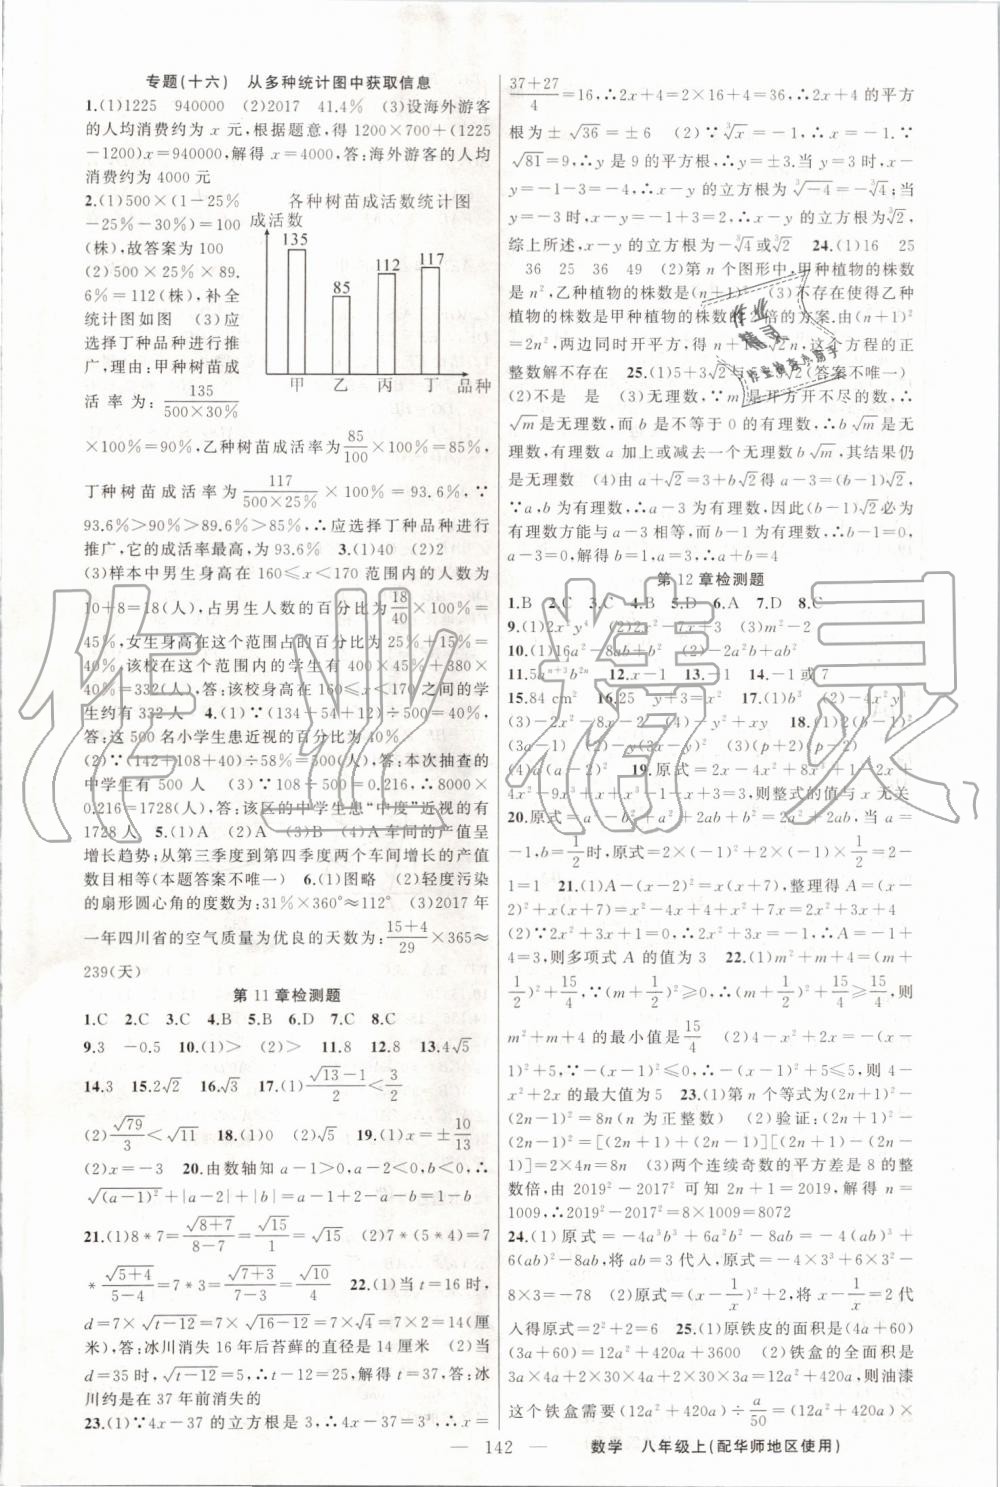 专题(十六) 从多种统计图中获取信息
1.(1)1225 940000 (2)2017 41.4% (3)设海外游客
的人均消费约为 x 元,根据题意,得 1200×700+(1225
-1200)x=940000,解得 x=4000,答:海外游客的人均
消费约为 4000 元
2.(1)500×(1-25%
-25%-30%)=100
(株),故答案为 100
(2)500×25%×89.
6%=112(株),补全
统计图如图 (3)应
选择丁种品种进行推
广,理由:甲种树苗成
活率为:135/(500×30%)
各种树苗成活数统计图
成活数
135
85
112
117
甲 乙 丙 丁 品种
×100%=90%,乙种树苗成活率为85/100×100%=85%,
丁种树苗成活率为117/(500×25%)×100%=93.6%,∵
93.6%>90%>89.6%>85%,∴应选择丁种品种进行
推广,它的成活率最高,为 93.6% 3.(1)40 (2)2
(3)样本中男生身高在 160≤x<170 范围内的人数为
10+8=18(人),占男生人数的百分比为18/40×100%=
45%,女生身高在这个范围占的百分比为 25%+15%=
40%,该校在这个范围内的学生有 400×45%+380×
40%=332(人),答:该校身高在 160≤x<170 之间的学
生约有 332 人 4.(1)∵(134+54+12)÷500=40%,
答:这 500 名小学生患近视的百分比为 40%
(2)∵(142+108+40)÷58%=500(人),答:本次抽查的
中学生有 500 人 (3)∵108÷500=0.216,∴8000×
0.216=1728(人),答:该区的中学生患“中度”近视的有
1728 人 5.(1)A (2)A (3)B (4)A 车间的产值呈
增长趋势;从第三季度到第四季度两个车间增长的产值
数目相等(本题答案不唯一) 6.(1)图略 (2)轻度污染
的扇形圆心角的度数为:31%×360°≈112° (3)2017 年
一年四川省的空气质量为优良的天数为:(15+4)/29×365≈
239(天)
第 11 章检测题
1.C 2.C 3.C 4.B 5.B 6.D 7.C 8.C
9.3 -0.5 10.(1)> (2)> 11.8 12.8 13.4√5
14.3 15.2√2 16.√3 17.(1)(√13-1)/2<3/2
(2)√79/3<√11 18.(1)0 (2)√5 19.(1)x=±10/13
(2)x=-3 20.由数轴知 a-1>0,a-2<0,b<0,∴
√(a-1)²+|a-2|+|b|=a-1+2-a-b=1-b
21.(1)8*7=√(8+7)/(8-7)=√15/1=√15 (2)7*(5*4)=7
*√(5+4)/(5-4)=7*3=√(7+3)/(7-3)=√10/4 22.(1)当 t=16 时,
d=7×√(t-12)=7×√(16-12)=7×√4=7×2=14(厘
米),答:冰川消失 16 年后苔藓的直径是 14 厘米 (2)当
d=35 时,√(t-12)=5,∴t-12=25,解得 t=37,答:冰
川约是在 37 年前消失的
23.(1)∵4x-37 的立方根是 3,∴4x-37=3³,∴x=
(37+27)/4=16,∴2x+4=2×16+4=36,∴2x+4 的平方
根为±√36=±6 (2)∵³√x=-1,∴x=-1.∵
√81=9,∴y 是 9 的平方根,∴y=±3.当 y=3 时,x-
y=-1-3=-4,∴x-y 的立方根为³√-4=-³√4;当
y=-3 时,x-y=-1+3=2,∴x-y 的立方根为³√2,
综上所述,x-y 的立方根为-³√4或³√2 24.(1)16 25
36 25 36 49 (2)第 n 个图形中,甲种植物的株数
是 n²,乙种植物的株数是(n+1)² (3)不存在使得乙种
植物的株数是甲种植物的株数的 2 倍的方案.由(n+1)²
=2n²,两边同时开平方,得 n+1=√2n,这个方程的正
整数解不存在 25.(1)5+3√2与5-3√2(答案不唯一)
(2)不是 是 (3)无理数;∵m 是开方开不尽的数,∴
√m是无理数,而 b 是不等于 0 的有理数,∴b√m是无
理数,有理数 a 加上或减去一个无理数 b√m,其结果仍
是无理数 (4)由 a+√2=3+b√2得 a-3=(b-1)√2,
∵a,b 为有理数,∴a-3 为有理数,因此(b-1)√2必为
有理数方能与 a-3 相等,而 b-1 为有理数,∴b-1=0,
a-3=0,解得 b=1,a=3,∴a+b=4
第 12 章检测题
1.B 2.C 3.C 4.B 5.D 6.A 7.D 8.C
9.(1)2x³y⁴ (2)2x²-7x+3 (3)m²-2
10.(1)16a²-8ab+b² (2)-2a²b+ab²
12.x-1 13.-1 14.-1 或 7
15.84 cm² 16.25 y=3=x² 17.(1)b³ (2)-4x²y³
(3)-2x²-8x-2 (4)-y²+xy 18.(1)2(b-1)²
(3a-1) (2)-y(3x-y)² (3)(p+2)(p-2)
(4)a(a-2)² 19.原式=2x-4x²+8x³+1-2x+
4x²-9x³+x+x³-x+3=3,则整式的值与 x 无关
20.原式=a²-b²+a²+2ab+b²-2a²=2ab,当 a=
-1,b=1/2时,原式=2×(-1)²-2×(-1)×1/2=2-
1=1 21.(1)A-(x-2)²=x(x+7),整理得 A=(x-
2)²+x(x+7)=x²-4x+4+x²+7x=2x²+3x+4
(2)∵2x²+3x+1=0,∴2x²+3x=-1,∴A=-1+
4=3,则多项式 A 的值为 3 22.(1)m²+m+4=(m+
1/2)²+15/4,∵(m+1/2)²≥0,∴(m+1/2)²+15/4≥15/4,则
m²+m+4 的最小值是15/4 (2)4-x²+2x=-(x-
1)²+5,∵-(x-1)²≤0,∴-(x-1)²+5≤5,则 4-
x²+2x 的最大值为 5 23.(1)第 n 个等式为(2n+1)²-
(2n-1)²=8n(n 为正整数) (2)验证:(2n+1)²-
(2n-1)²=[(2n+1)+(2n-1)][(2n+1)-(2n-
1)]=2×4n=8n (3)两个连续奇数的平方差是 8 的整
数倍,由 2019²-2017² 可知 2n+1=2019,解得 n=
1009,∴2019²-2017²=8×1009=8072
24.(1)原式=-4a³b³+6a²b²-8ab=-4(ab)³+
6(ab)²-8ab,将 ab=3 代入,原式=-4×3³+6×3²-
8×3=-78 (2)原式=(x-1/x)²+2,将 x-1/x=2代
入得原式=2²+2=6 25.(1)原铁皮的面积是(4a+60)
(3a+60)=12a²+420a+3600 (2)铁盒的全面积是
3a×4a+2×30×4a+2×30×3a=12a²+420a,则油漆
这个铁盒需要(12a²+420a)÷a/50=(12a²+420a)×
— 142 — 数学 八年级上(配华师地区使用)
作业精灵